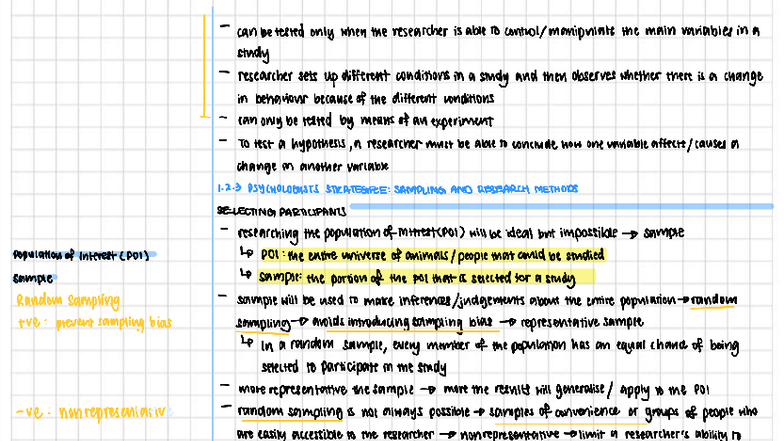 - can be tested only when the researcher is able to control/manipulate the main variables in a
study
- researcher sets up different conditions in a study and then observes whether there is a change
in behaviour because of the different conditions
- can only be tested by means of an experiment
- To test a hypothesis, a researcher must be able to conclude how one variable affects/causes a
change on another variable
1.2.3 PSYCHOLOGISTS STRATEGIZE: SAMPLING AND RESEARCH METHODS
SELECTING PARTICIPANTS
- researching the population of interest (POI) will be ideal but impossible → sample
Population of Interest (POI)
↳ POI: the entire universe of animals/people that could be studied
Sample
↳ sample: the portion of the POI that is selected for a study
Random Sampling
- sample will be used to make inferences/judgements about the entire population → random
+ve: prevent sampling bias
sampling → avoids introducing sampling bias → representative sample
↳ In a random sample, every member of the population has an equal chance of being
selected to participate in the study
- more representative the sample → more the results will generalise/ apply to the POI
-ve: nonrepresentativ
- random sampling is not always possible → samples of convenience or groups of people who
are easily accessible to the researcher → nonrepresentative → limit a researcher's ability to